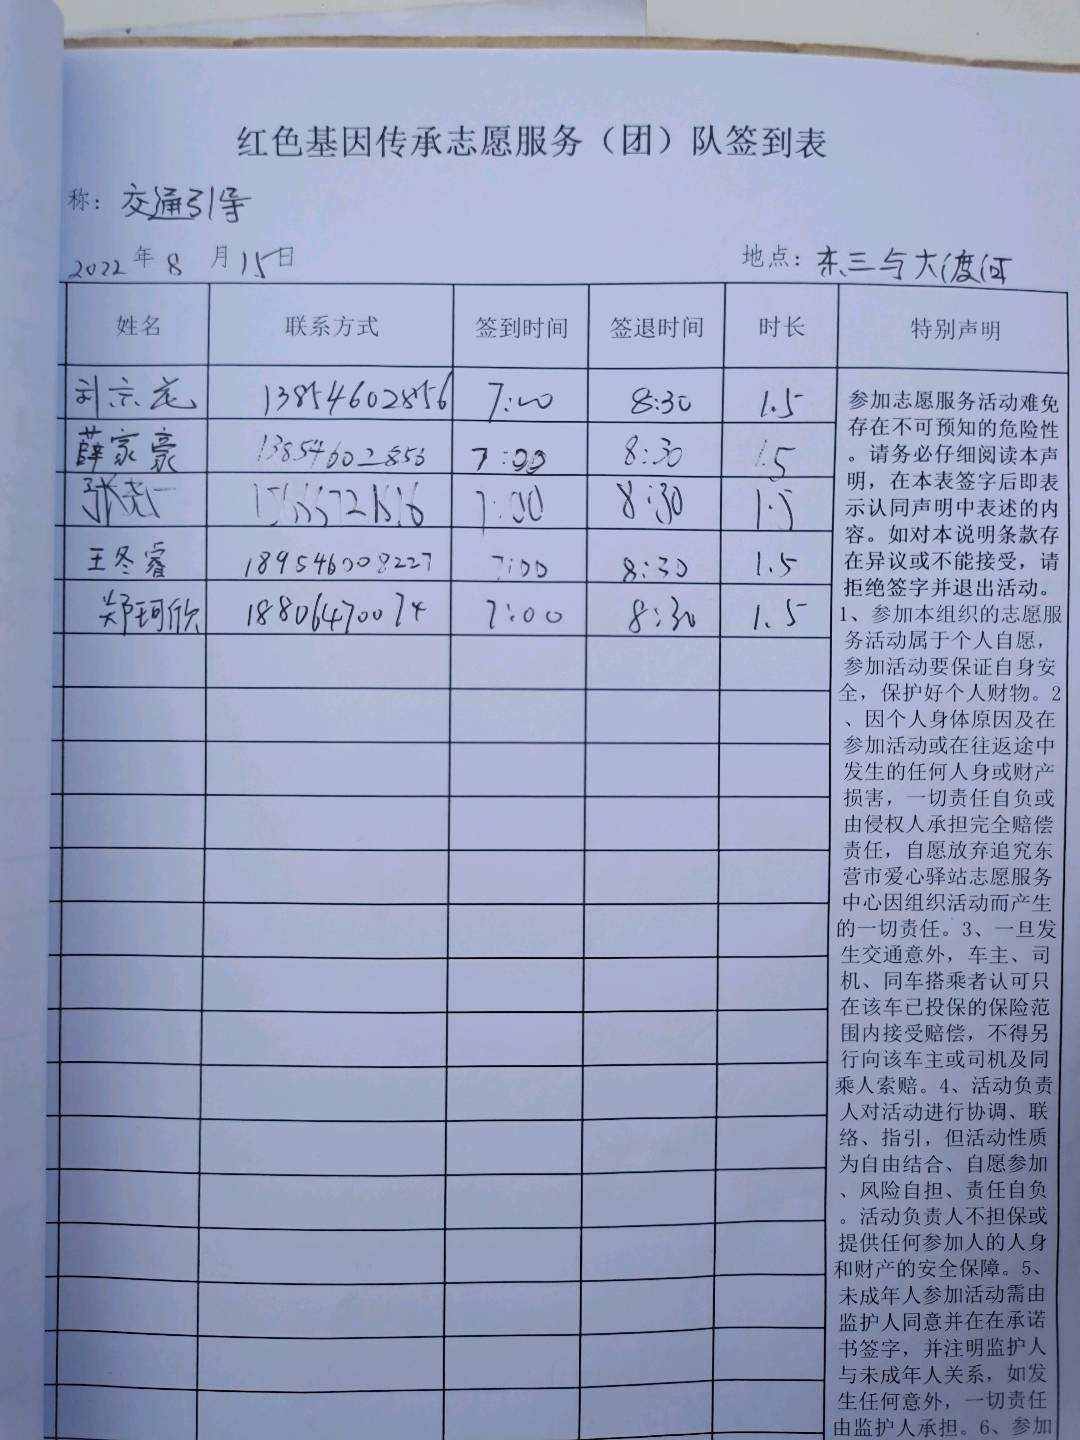 红色基因传承志愿服务（团）队签到表
称：交通引导
2022年8月15日 地点：东三与大渡河
姓名 联系方式 签到时间 签退时间 时长 特别声明
刘宗 13854602856 7:00 8:30 1.5
薛家豪 13854602856 7:00 8:30 1.5
张 7:00 8:30 1.5
王冬睿 189546008227 7:00 8:30 1.5
郑珂欣 18806470074 7:00 8:30 1.5
参加志愿服务活动难免
存在不可预知的危险性
。请务必仔细阅读本声
明，在本表签字后即表
示认同声明中表述的内
容。如对本说明条款存
在异议或不能接受，请
拒绝签字并退出活动。
1、参加本组织的志愿服
务活动属于个人自愿，
参加活动要保证自身安
全，保护好个人财物。2
、因个人身体原因及在
参加活动或在往返途中
发生的任何人身或财产
损害，一切责任自负或
由侵权人承担完全赔偿
责任，自愿放弃追究东
营市爱心驿站志愿服务
中心因组织活动而产生
的一切责任。3、一旦发
生交通意外，车主、司
机、同车搭乘者认可只
在该车已投保的保险范
围内接受赔偿，不得另
行向该车主或司机及同
乘人索赔。4、活动负责
人对活动进行协调、联
络、指引，但活动性质
为自由结合、自愿参加
、风险自担、责任自负
。活动负责人不担保或
提供任何参加人的人身
和财产的安全保障。5、
未成年人参加活动需由
监护人同意并在在承诺
书签字，并注明监护人
与未成年人关系，如发
生任何意外，一切责任
由监护人承担。6、参加